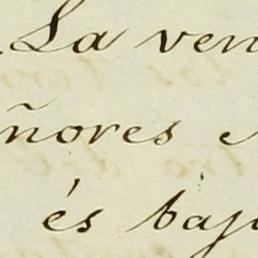 La ven
ñores
és bajo